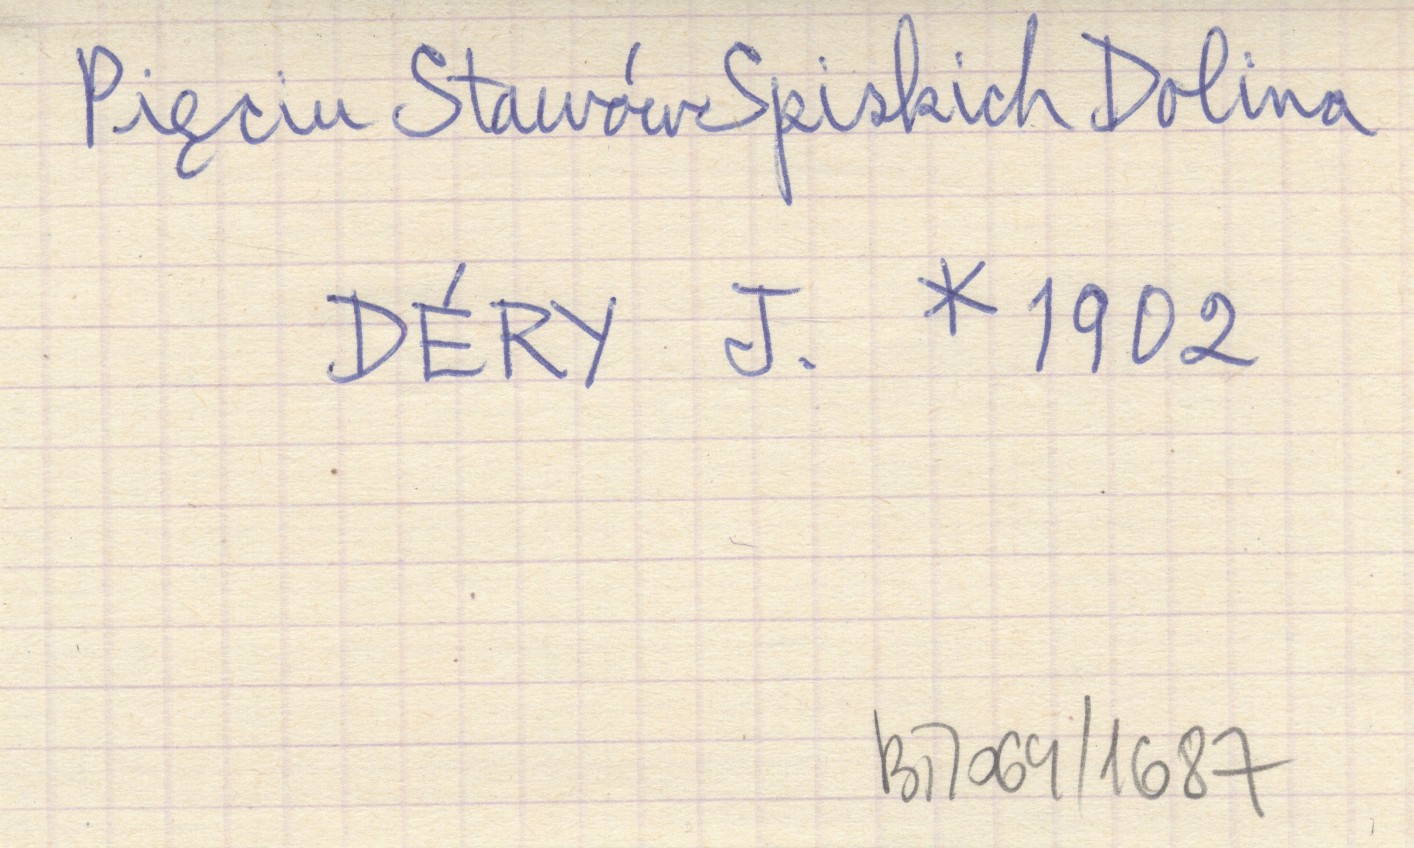 Pięciu Stawów Spiskich Dolina
DÉRY J. * 1902
B17069/1687